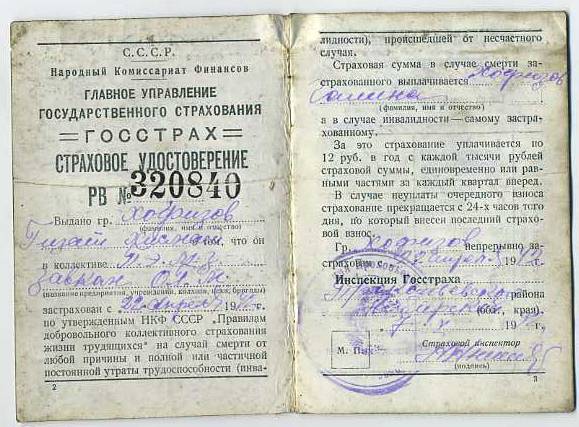 С.С.С.Р.
Народный Комиссариат Финансов
ГЛАВНОЕ УПРАВЛЕНИЕ
ГОСУДАРСТВЕННОГО СТРАХОВАНИЯ
=ГОССТРАХ=
СТРАХОВОЕ УДОСТОВЕРЕНИЕ
РВ № 320840
Выдано гр. Хафизов
(фамилия, имя и отчество)
в том, что он
в коллективе
(название предприятия, учреждения, колхоза, цеха, бригады)
застрахован с 22 апреля 194
по утвержденным НКФ СССР „Правилам
добровольного коллективного страхования
жизни трудящихся" на случай смерти от
любой причины и полной или частичной
постоянной утраты трудоспособности (инва-
2
лидности), происшедшей от несчастного
случая.
Страховая сумма в случае смерти за-
страхованного выплачивается
(фамилия, имя и отчество)
а в случае инвалидности—самому застра-
хованному.
За это страхование уплачивается по
12 руб. в год с каждой тысячи рублей
страховой суммы, единовременно или рав-
ными частями за каждый квартал вперед.
В случае неуплаты очередного взноса
страхование прекращается с 24-х часов того
дня, по который внесен последний страхо-
вой взнос.
Гр. Хафизов непрерывно за-
страхован с 194
Инспекция Госстраха
района
(обл. края).
194
М. П.
Страховой инспектор
(подпись)
3